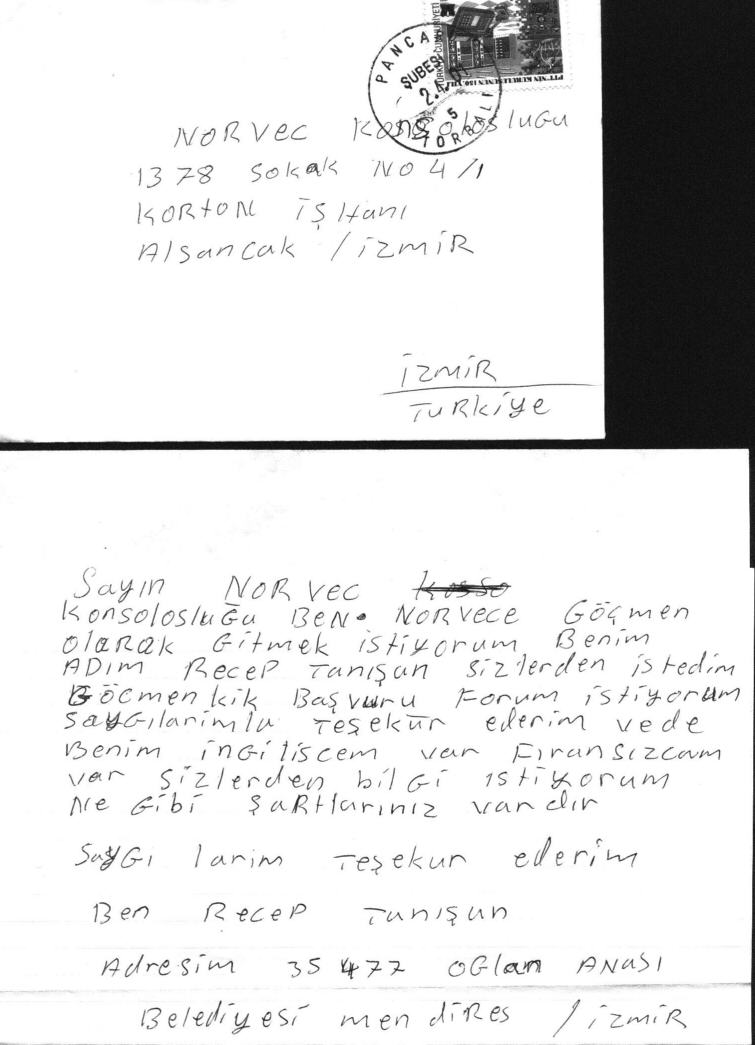 PANCA
ŞUBESİ
TORBALI
TÜRKİYE CUMHURİYETİ
PTT'NİN KURULUŞUNUN 150. YILI
NORVEC KONSOLOSLUGU
1378 Sokak NO 4/1
KORtON İŞ Hanı
Alsancak / İZMİR
İZMİR
TURKİYE
Sayın NORVEC Kosso
KonsolosluĞu BEN. NORVECE GÖçmen
OlaRAK GitmEk istiyorum Benim
ADım RecEP Tanışan Sizlerden istedim
Göcmenkik Başvuru Forum istiyorum
SaYGılarimla Teşekür ederim vede
Benim ingiliscem var Fıransızcam
var Sizlerden bilgi ıstiyorum
NE Gibi ŞaRtlarınız vardır
SaYGı larim Teşekur ederim
Ben RecEP Tanışan
Adresim 35477 OGlan ANası
Belediyesi mendiRes / İZMİR